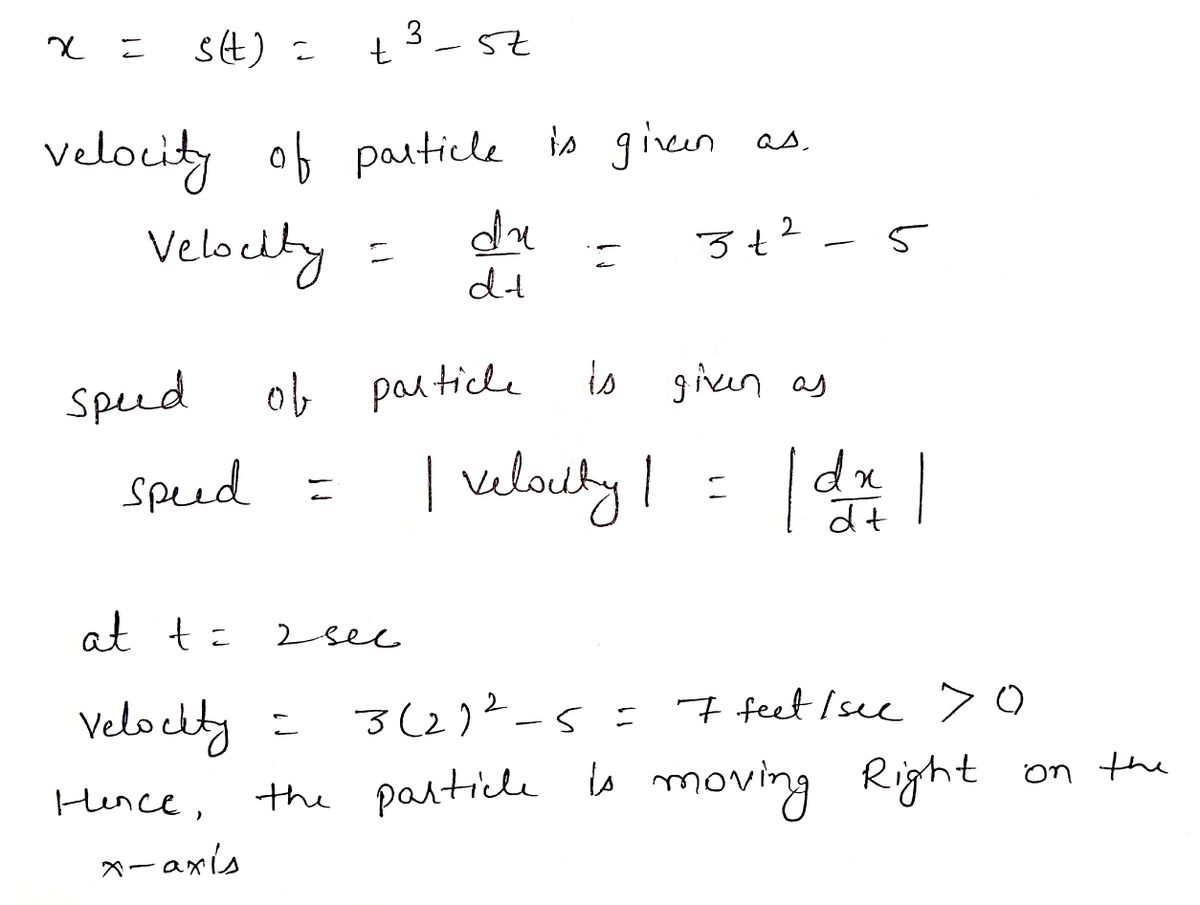 x = s(t) = t³ - 5t
velocity of particle is given as.
Velocity = dx/dt = 3t² - 5
speed of particle is given as
speed = | velocity | = | dx/dt |
at t = 2 sec
velocity = 3(2)² - 5 = 7 feet/sec > 0
Hence, the particle is moving Right on the
x-axis